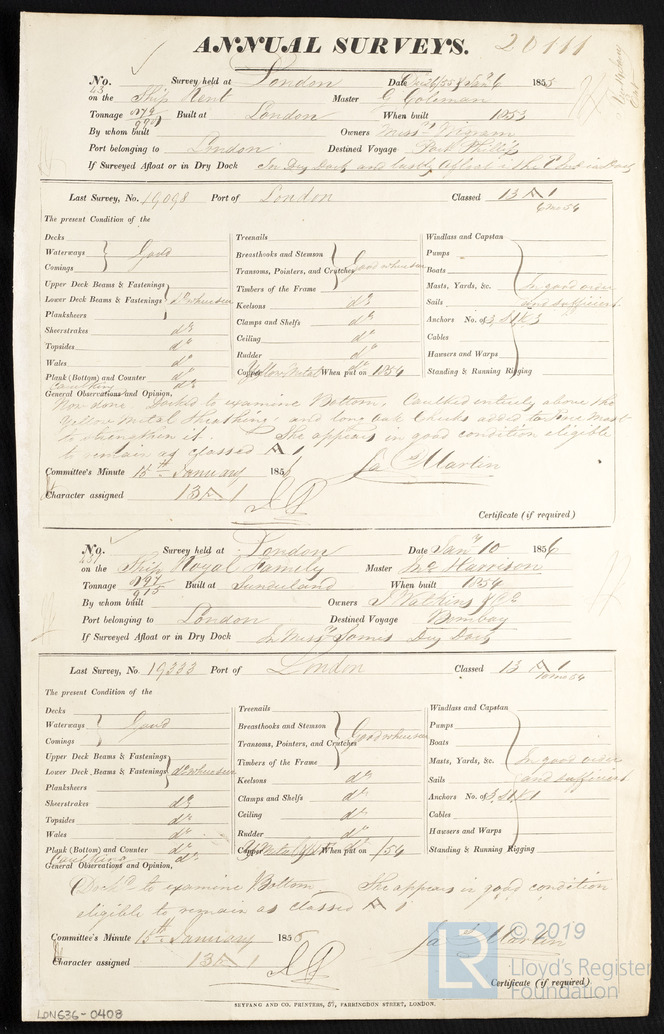 ANNUAL SURVEYS. 20111
No. 43 Survey held at London Date Jany 6 1853
on the Ship Kent Master G Coleman
Tonnage 979 Built at London When built 1853
By whom built Owners Messrs Wigram
Port belonging to London Destined Voyage Port Phillip
If Surveyed Afloat or in Dry Dock In Dry Dock and lastly Afloat in the Dock
Last Survey, No. 19098 Port of London Classed 13 A 1
6 mo 54
The present Condition of the
Decks
Waterways Good
Comings
Upper Deck Beams & Fastenings
Lower Deck Beams & Fastenings do where seen
Planksheers
Sheerstrakes do
Topsides do
Wales do
Plank (Bottom) and Counter do
Caulking do
Treenails
Breasthooks and Stemson
Transoms, Pointers, and Crutches Good where seen
Timbers of the Frame
Keelsons do
Clamps and Shelfs do
Ceiling do
Rudder do
Copper Yellow Metal When put on 1854
Windlass and Capstan
Pumps
Boats
Masts, Yards, &c. In good order
Sails and sufficient
Anchors No. of 3, St. & K
Cables
Hawsers and Warps
Standing & Running Rigging
General Observations and Opinion,
Now done. Docked to examine Bottom, Caulked entirely above the
Yellow Metal Sheathing, and long oak Chocks added to Fore mast
to strengthen it. She appears in good condition eligible
to remain as classed A 1
Committee's Minute 15th January 1856 Jas Martin
Character assigned 13 A 1
Certificate (if required)
No. 431 Survey held at London Date Jany 10 1856
on the Ship Royal Family Master Harrison
Tonnage Built at Sunderland When built 1854
By whom built Owners J Watkins & Co
Port belonging to London Destined Voyage Bombay
If Surveyed Afloat or in Dry Dock In Messrs James Dry Dock
Last Survey, No. 19333 Port of London Classed 13 A 1
The present Condition of the
Decks
Waterways Good
Comings
Upper Deck Beams & Fastenings
Lower Deck Beams & Fastenings do where seen
Planksheers
Sheerstrakes do
Topsides do
Wales do
Plank (Bottom) and Counter do
Caulking do
Treenails
Breasthooks and Stemson
Transoms, Pointers, and Crutches Good where seen
Timbers of the Frame
Keelsons do
Clamps and Shelfs do
Ceiling do
Rudder do
Copper When put on /54
Windlass and Capstan
Pumps
Boats
Masts, Yards, &c. In good order
Sails and sufficient
Anchors No. of 3, St. & K
Cables
Hawsers and Warps
Standing & Running Rigging
General Observations and Opinion,
Dockd to examine Bottom She appears in good condition
eligible to remain as classed A 1
Committee's Minute 15th January 1856 Jas Martin
Character assigned 13 A 1
Certificate (if required)
SEYFANG AND CO. PRINTERS, 57, FARRINGDON STREET, LONDON.
LON636-0408
LR © 2019
Lloyd's Register
Foundation